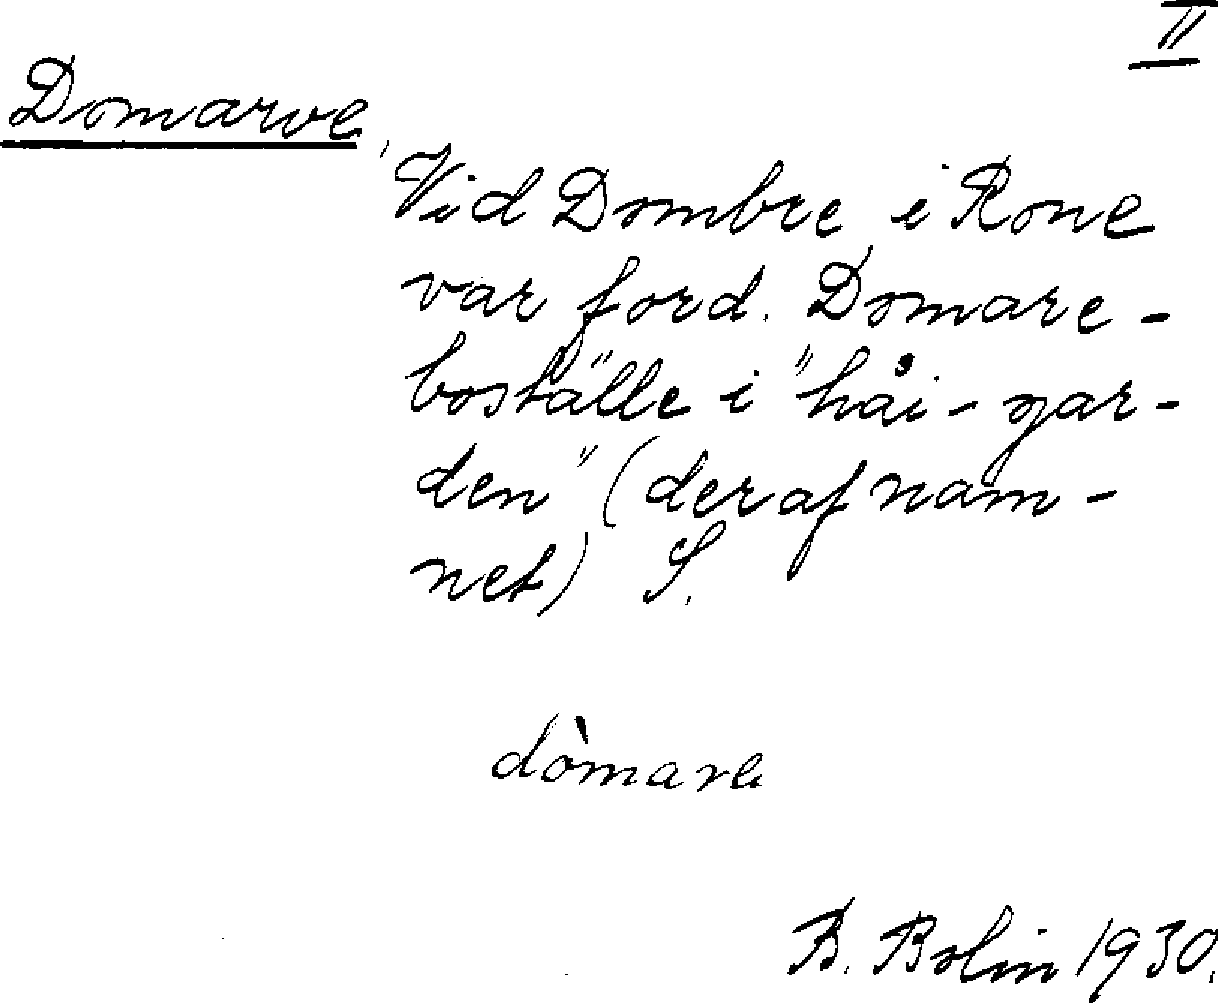 II
Domarve
Vid Dombre i Rone
var ford. Domare-
boställe i "håi-gar-
den" (deraf nam-
net) S.
dòmare
B. Bolin 1930.